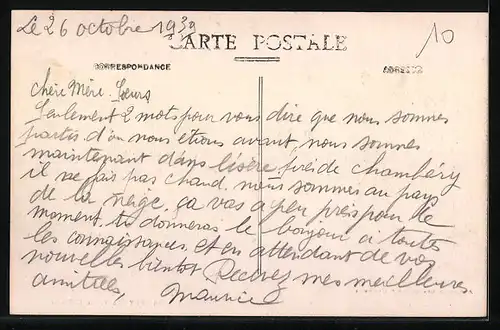 Le 26 octobre 1939
10
CARTE POSTALE
CORRESPONDANCE
ADRESSE
chère Mère. Sœurs
Seulement 2 mots pour vous dire que nous sommes
partis d'ou nous etions avant, nous sommes
maintenant dans lisère près de chambéry
il ne fais pas chaud, nous sommes au pays
de la neige, ça vas a peu près pour le
moment. tu donneras le bonjour a toutes
les connaissances, et en attendant de vos
nouvelles bientot Recevez mes meilleures
amitiées, Maurice